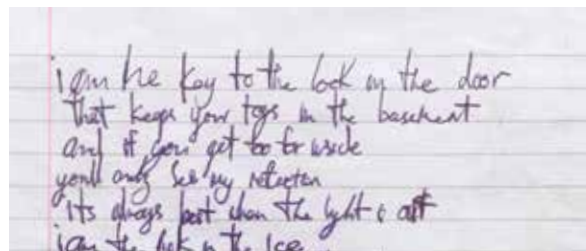 i am he key to the lock in the door
that keeps your toys in the basement
and if you get too far inside
you'll only see my reflection
its always best when the light is off
i am the pick in the ice